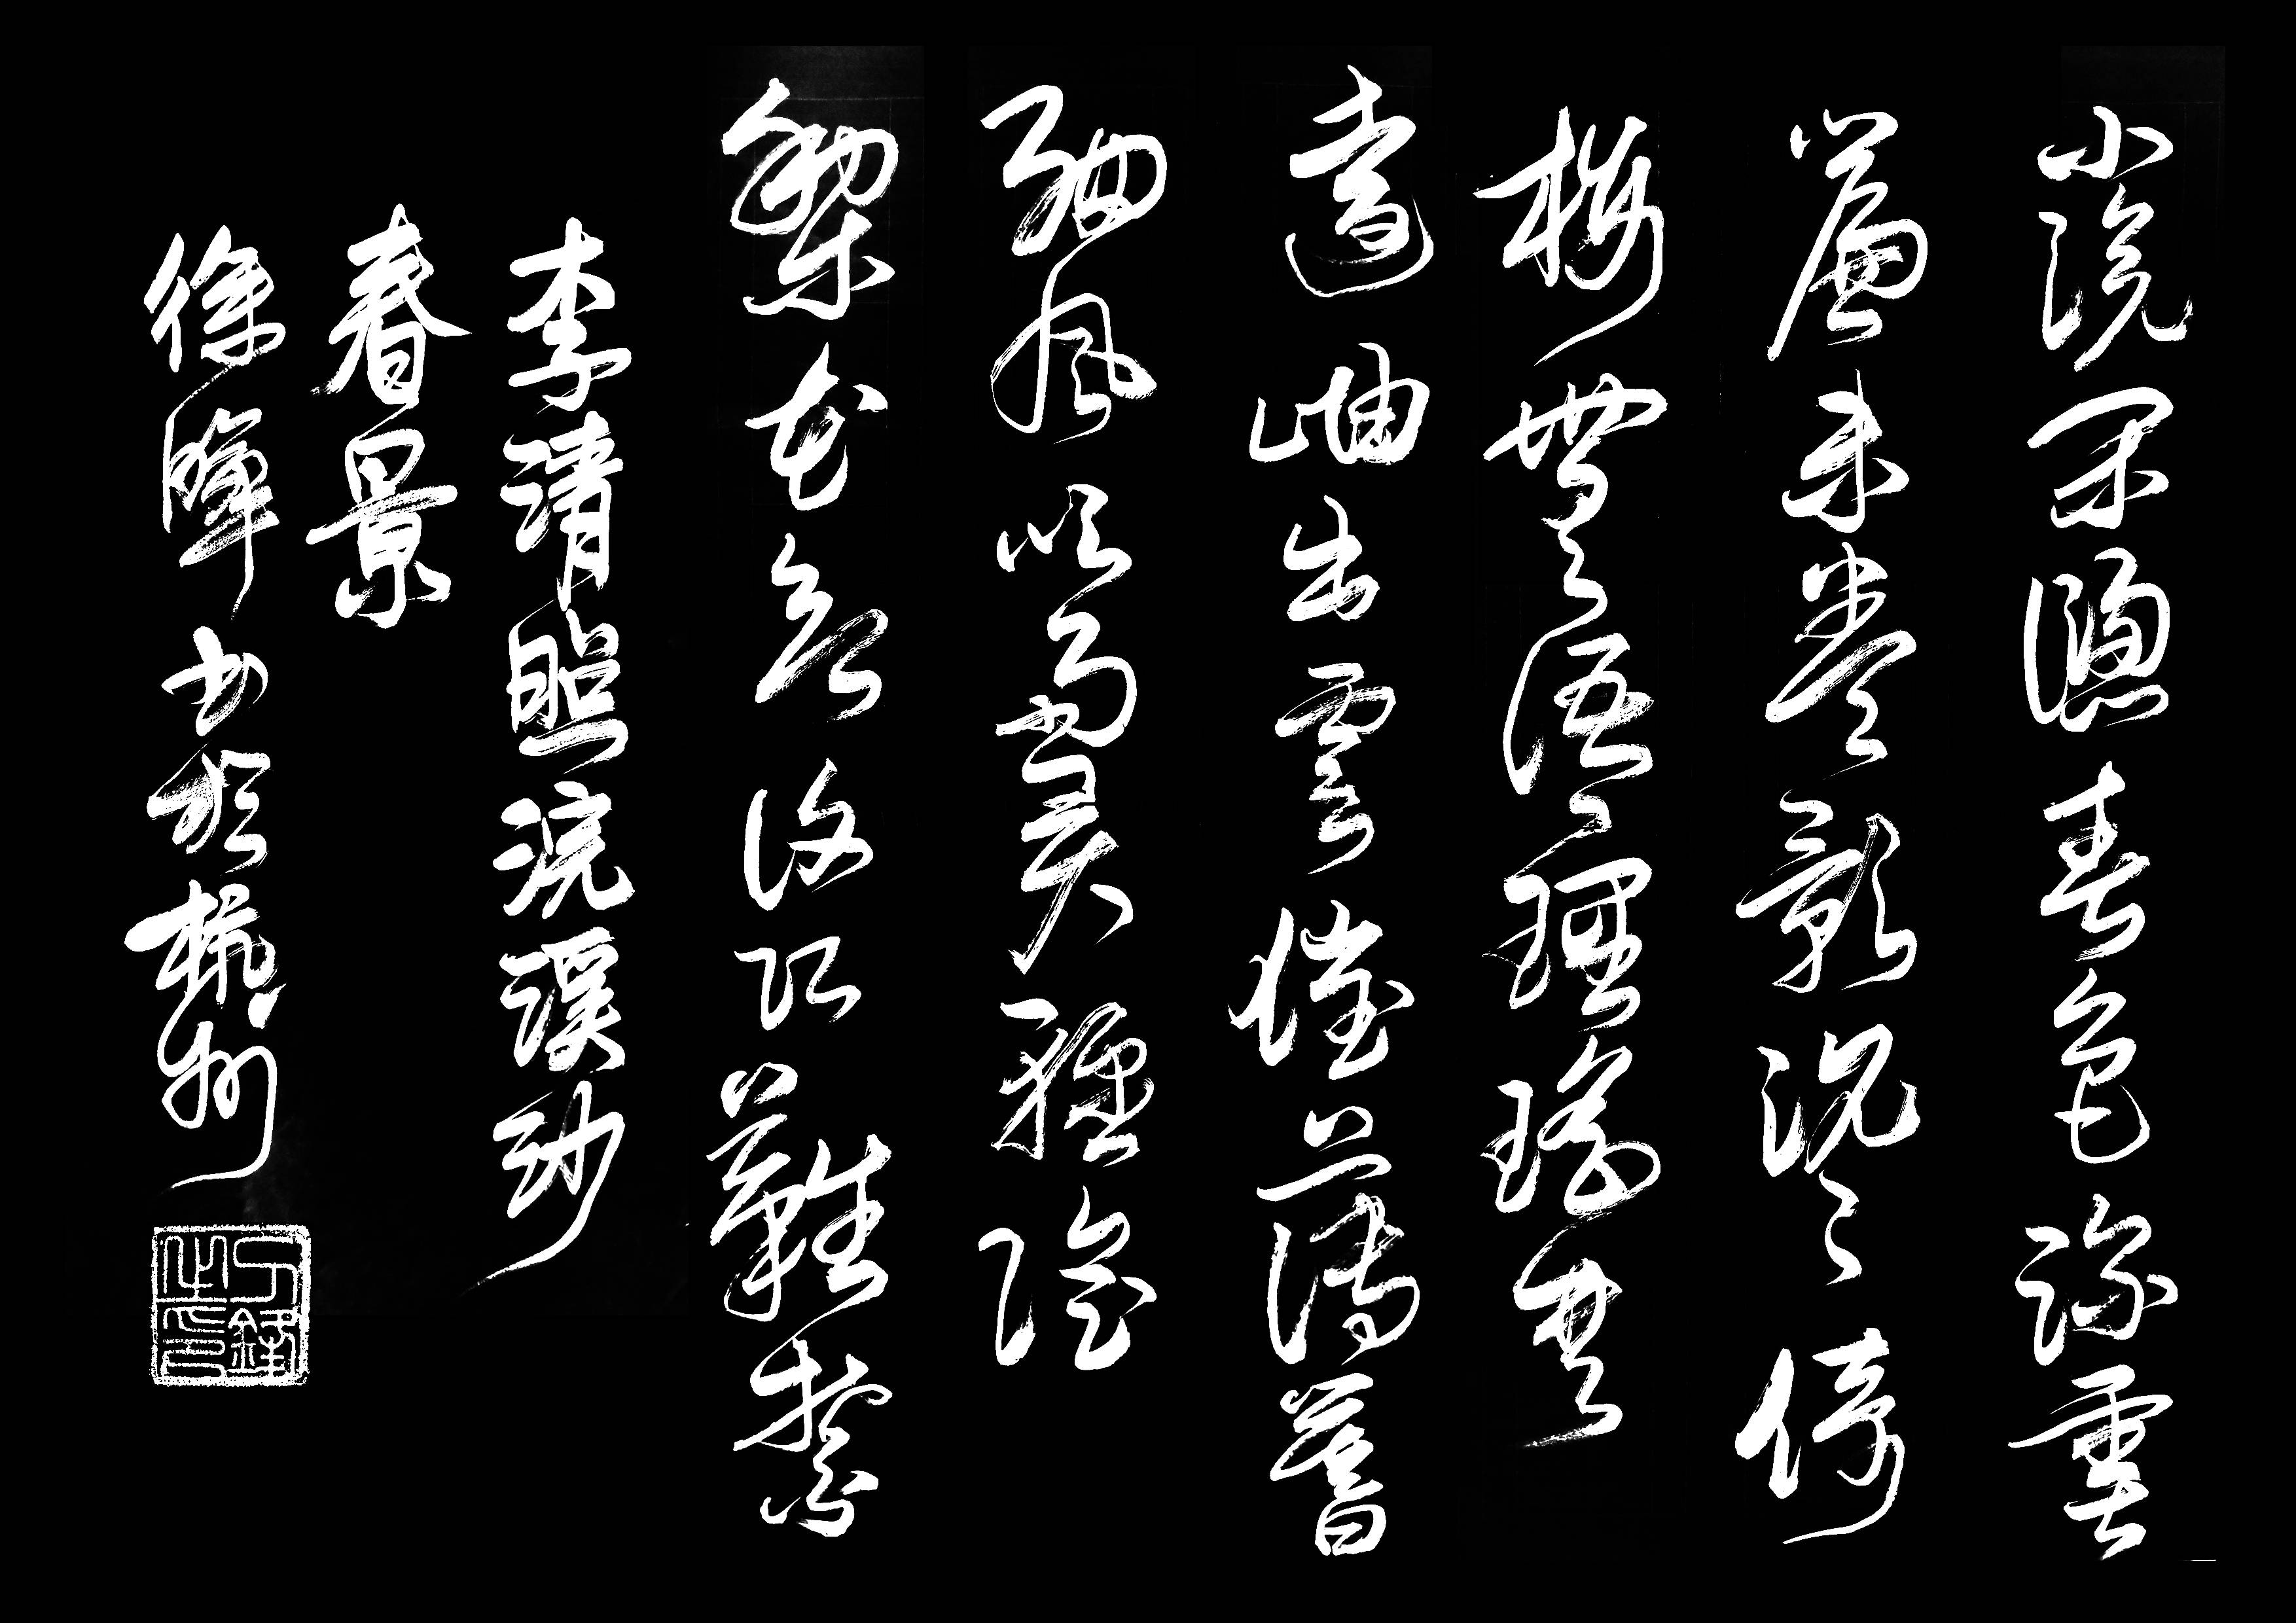 小院閑窗春色深重
簾未卷影沉沉倚
樓無語理瑤琴
遠岫出雲催薄暮
細風吹雨弄輕陰
梨花欲謝恐難禁
李清照浣溪沙
春景
徐暉书於州
丁鋒之印